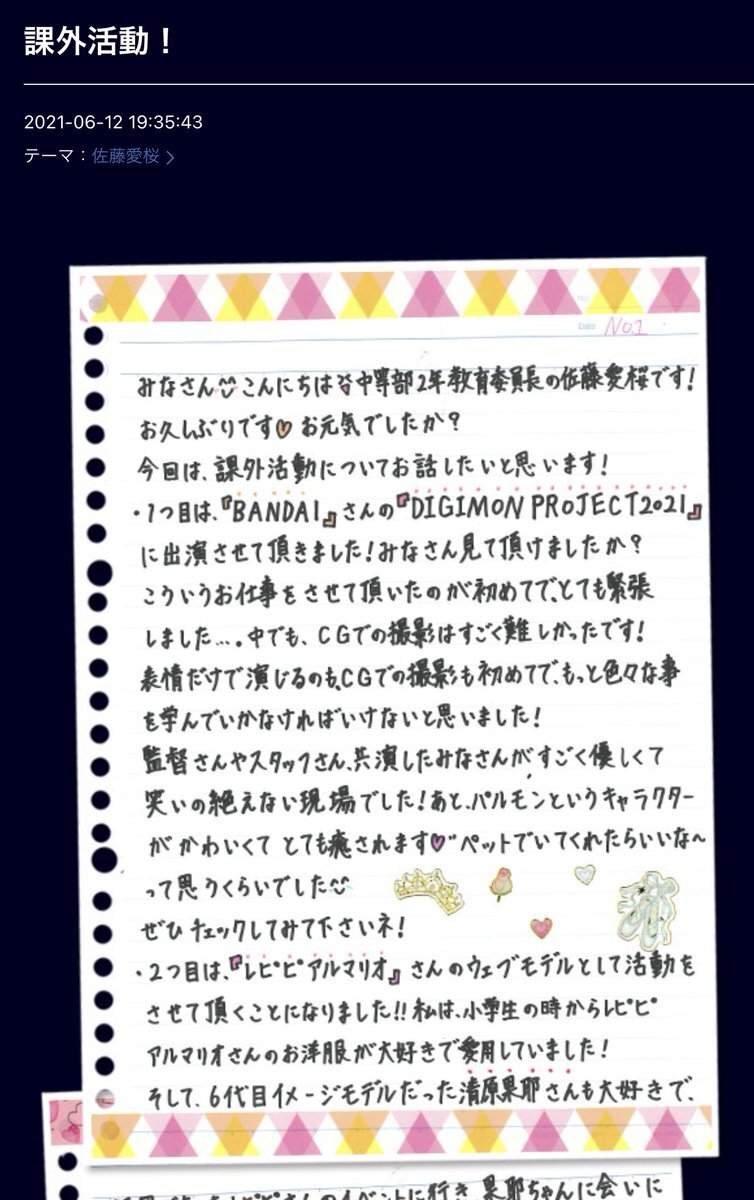 課外活動！
2021-06-12 19:35:43
テーマ：佐藤愛桜
No.
Date No.1
みなさんこんにちは中等部2年教育委員長の佐藤愛桜です!
お久しぶりです♡お元気でしたか?
今回は、課外活動についてお話したいと思います!
・1つ目は、『BANDAI』さんの『DIGIMON PROJECT2021』
に出演させて頂きました!みなさん見て頂けましたか?
こういうお仕事をさせて頂いたのが初めてで、とても緊張
しました…。中でも、CGでの撮影はすごく難しかったです!
表情だけで演じるのも、CGでの撮影も初めてで、もっと色々な事
を学んでいかなければいけないと思いました!
監督さんやスタッフさん、共演したみなさんが、すごく優しくて
笑いの絶えない現場でした!あと、パルモンというキャラクター
がかわいくてとても癒されます♡ペットでいてくれたらいいな~
って思うくらいでした
ぜひチェックしてみて下さいネ!
・2つ目は、『レピピアルマリオ』さんのウェブモデルとして活動を
させて頂くことになりました!!私は、小学生の時からレピピ
アルマリオさんのお洋服が大好きで愛用していました!
そして、6代目イメージモデルだった清原果耶さんも大好きで、
さんのイベントに行き果耶ちゃんに会いに